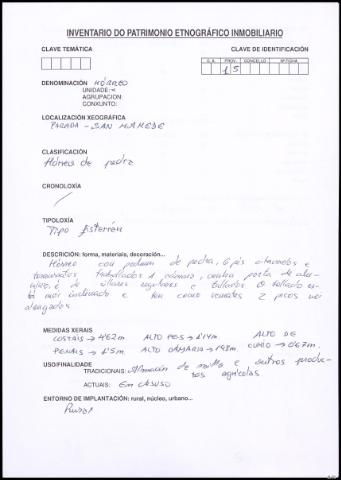 INVENTARIO DO PATRIMONIO ETNOGRÁFICO INMOBILIARIO
CLAVE TEMÁTICA
CLAVE DE IDENTIFICACIÓN
C.A. PROV. CONCELLO Nº FICHA
15
DENOMINACIÓN HÓRREO
UNIDADE:
AGRUPACION:
CONXUNTO:
LOCALIZACIÓN XEOGRÁFICA
PARADA - SAN MAMEDE
CLASIFICACIÓN
Hórreo de pedra
CRONOLOXÍA
/
TIPOLOXÍA
Tipo Fisterrán
DESCRICIÓN: forma, materiais, decoración...
Hórreo con de pedra, 6 pés e
tornarratos traballados conta porta de alu-
é de sillares regulares e O tellado es-
tá moi inclinado e ten como remates 2 picos moi
alongados
MEDIDAS XERAIS
COSTAIS → 4'62 m. ALTO PES → 1'14 m. ALTO DE
PENAIS → 1'5 m. ALTO CÁMARA → 1'98 m. CUMIO → 0'67 m.
USO/FINALIDADE
TRADICIONAIS: de millo e outros produc-
tos agrícolas
ACTUAIS: En desuso
ENTORNO DE IMPLANTACIÓN: rural, núcleo, urbano...
Rural